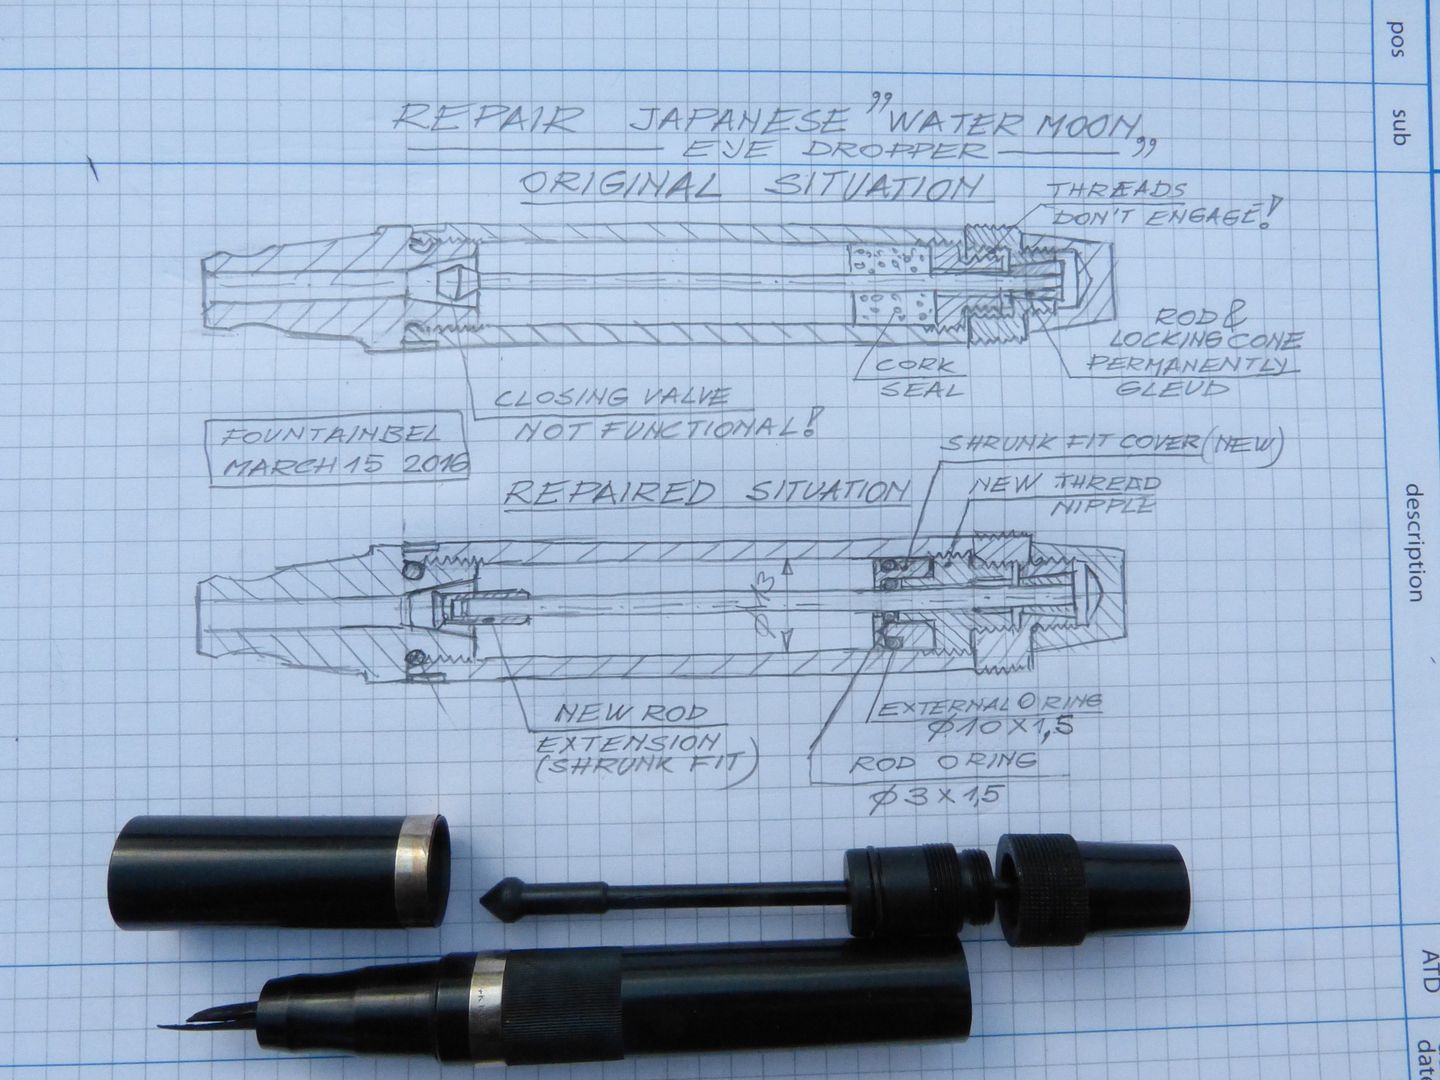 REPAIR JAPANESE "WATER MOON"
EYE DROPPER
ORIGINAL SITUATION
THREADS
DON'T ENGAGE!
ROD &
LOCKING CONE
PERMANENTLY
GLEUD
CORK
SEAL
CLOSING VALVE
NOT FUNCTIONAL!
FOUNTAINBEL
MARCH 15 2016
SHRUNK FIT COVER (NEW)
NEW THREAD
NIPPLE
REPAIRED SITUATION
NEW ROD
EXTENSION
(SHRUNK FIT)
EXTERNAL O RING
Ø10 X 1,5
ROD O RING
Ø3 X 1,5
pos
sub
description
ATD
date